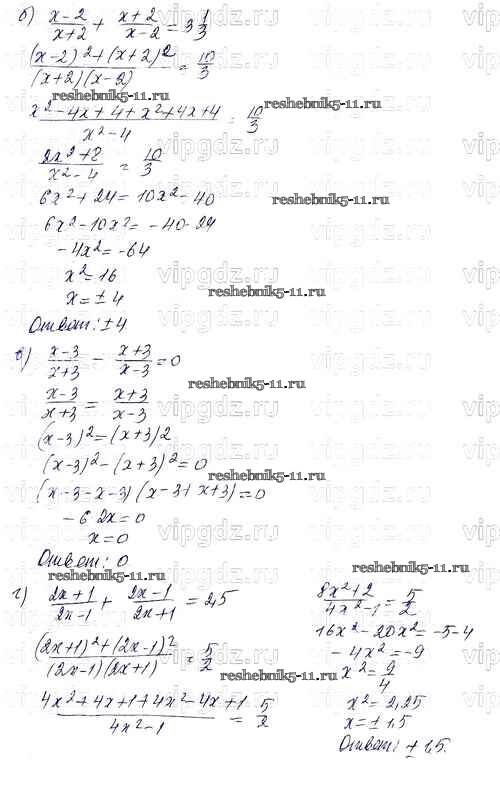 б) (x-2)/(x+2) + (x+2)/(x-2) = 3 1/3
((x-2)² + (x+2)²)/((x+2)(x-2)) = 10/3
reshebnik5-11.ru
(x² - 4x + 4 + x² + 4x + 4)/(x² - 4) = 10/3
(2x² + 8)/(x² - 4) = 10/3
6x² + 24 = 10x² - 40
reshebnik5-11.ru
6x² - 10x² = -40 - 24
-4x² = -64
x² = 16
x = ± 4
reshebnik5-11.ru
Ответ: ±4
в) (x-3)/(x+3) - (x+3)/(x-3) = 0
reshebnik5-11.ru
(x-3)/(x+3) = (x+3)/(x-3)
(x-3)² = (x+3)2
(x-3)² - (x+3)² = 0
reshebnik5-11.ru
(x-3-x-3)(x-3+x+3) = 0
-6 2x = 0
x = 0
Ответ: 0
reshebnik5-11.ru
reshebnik5-11.ru
г) (2x+1)/(2x-1) + (2x-1)/(2x+1) = 2,5
((2x+1)² + (2x-1)²)/((2x-1)(2x+1)) = 5/2
(4x² + 4x + 1 + 4x² - 4x + 1)/(4x² - 1) = 5/2
(8x² + 2)/(4x² - 1) = 5/2
16x² - 20x² = -5 - 4
-4x² = -9
x² = 9/4
x² = 2,25
x = ± 1,5
Ответ: ± 1,5.
vipgdz.ru